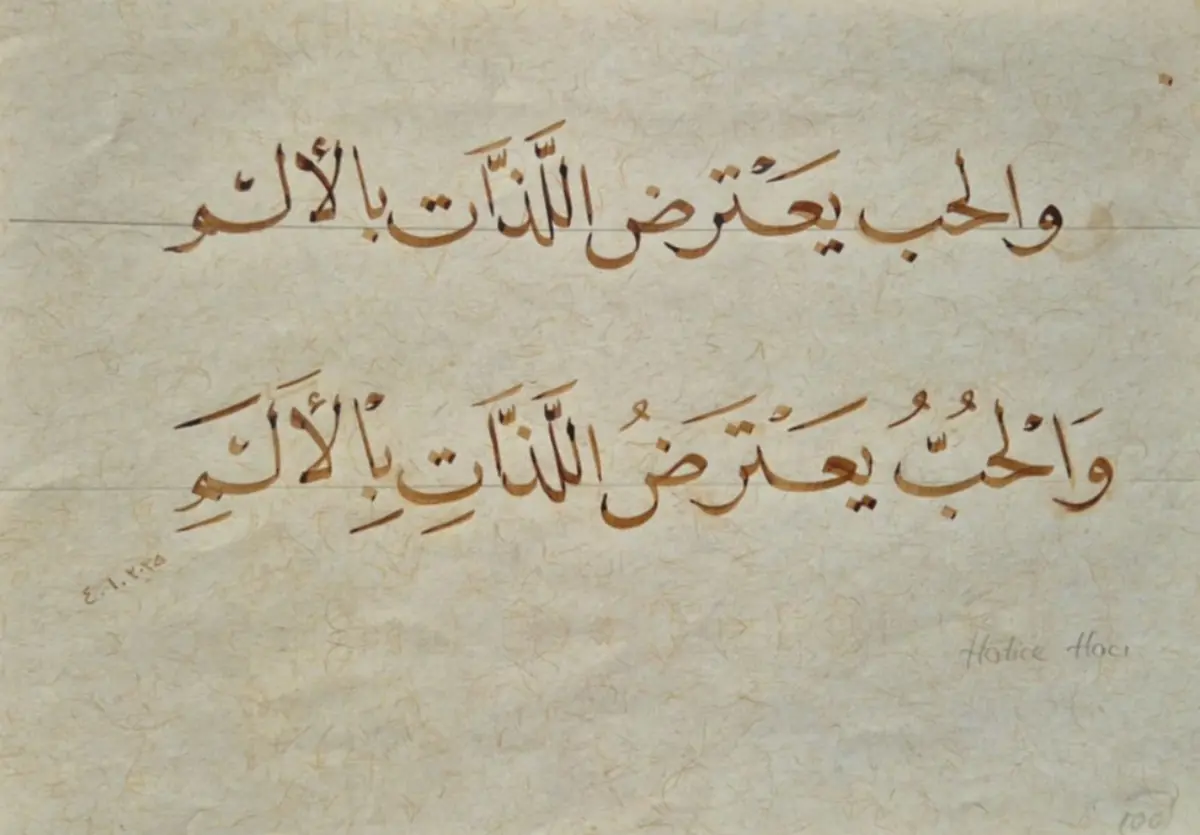 والحب يعْترض اللَّذَّات بالألم
وَالْحُبُّ يَعْتَرِضُ اللَّذَّاتِ بِالْأَلَمِ
٤.١.٢.٢٥
Hatice Hacı
100